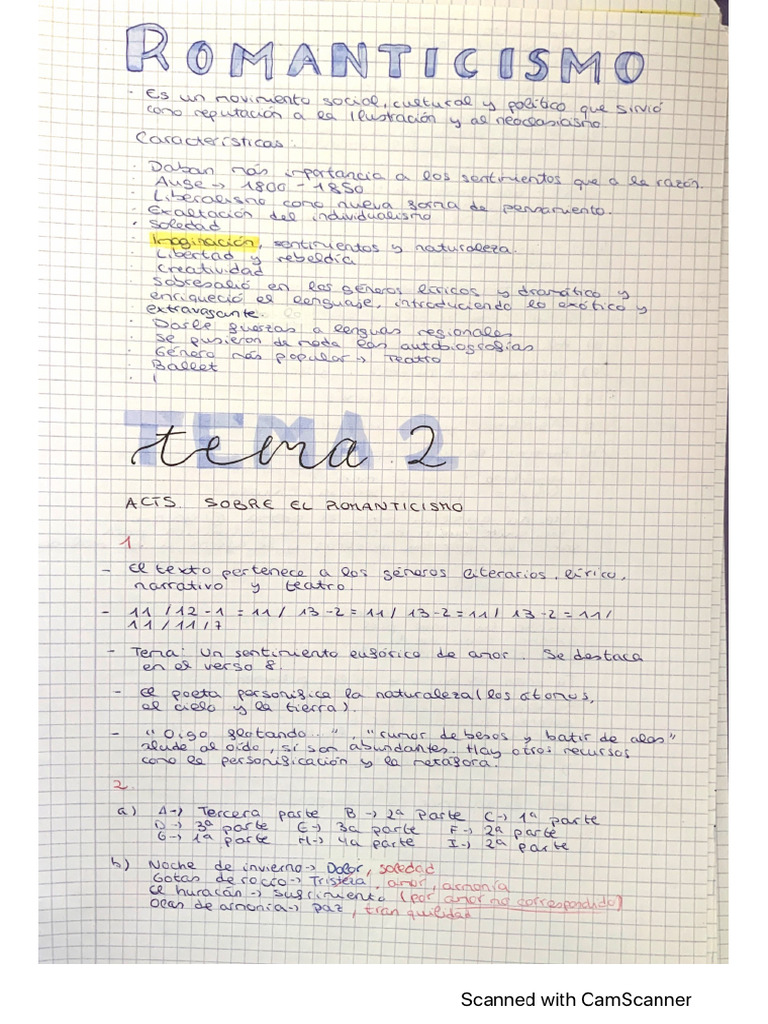 ROMANTICISMO
· Es un movimiento social, cultural y político que sirvió
como reputación a la Ilustración y al neoclasicismo.
Características:
· Daban más importancia a los sentimientos que a la razón.
· Auge → 1800 - 1850
· Liberalismo como nueva forma de pensamiento.
· Exaltación del individualismo
· Soledad
· Imaginación, sentimientos y naturaleza.
· Libertad y rebeldía
· Creatividad
· Sobresalió en los géneros líricos y dramático y
enriqueció el lenguaje, introduciendo lo exótico y
extravagante.
· Darle fuerzas a lenguas regionales
· Se pusieron de moda las autobiografías
· Género más popular → Teatro
· Ballet
TEMA 2
tema 2
ACTS. SOBRE EL ROMANTICISMO
1.
- El texto pertenece a los géneros literarios, lírico,
narrativo y teatro.
- 11 / 12 - 1 = 11 / 13 - 2 = 11 / 13 - 2 = 11 / 13 - 2 = 11 /
11 / 11 / 7
- Tema: Un sentimiento eufórico de amor. Se destaca
en el verso 8.
- El poeta personifica la naturaleza (los átomos,
el cielo y la tierra).
- "Oigo flotando...", "rumor de besos y batir de alas"
alude al oído, sí son abundantes. Hay otros recursos
como la personificación y la metáfora.
2.
a) A → Tercera parte B → 2ª parte C → 1ª parte
D → 3ª parte E → 3a parte F → 2ª parte
G → 1ª parte H → 4a parte I → 2ª parte
b) Noche de invierno → Dolor, soledad
Gotas de rocío → Tristeza, amor, armonía
El huracán → sufrimiento (por amor no correspondido)
Olas de armonía → paz, tranquilidad
Scanned with CamScanner